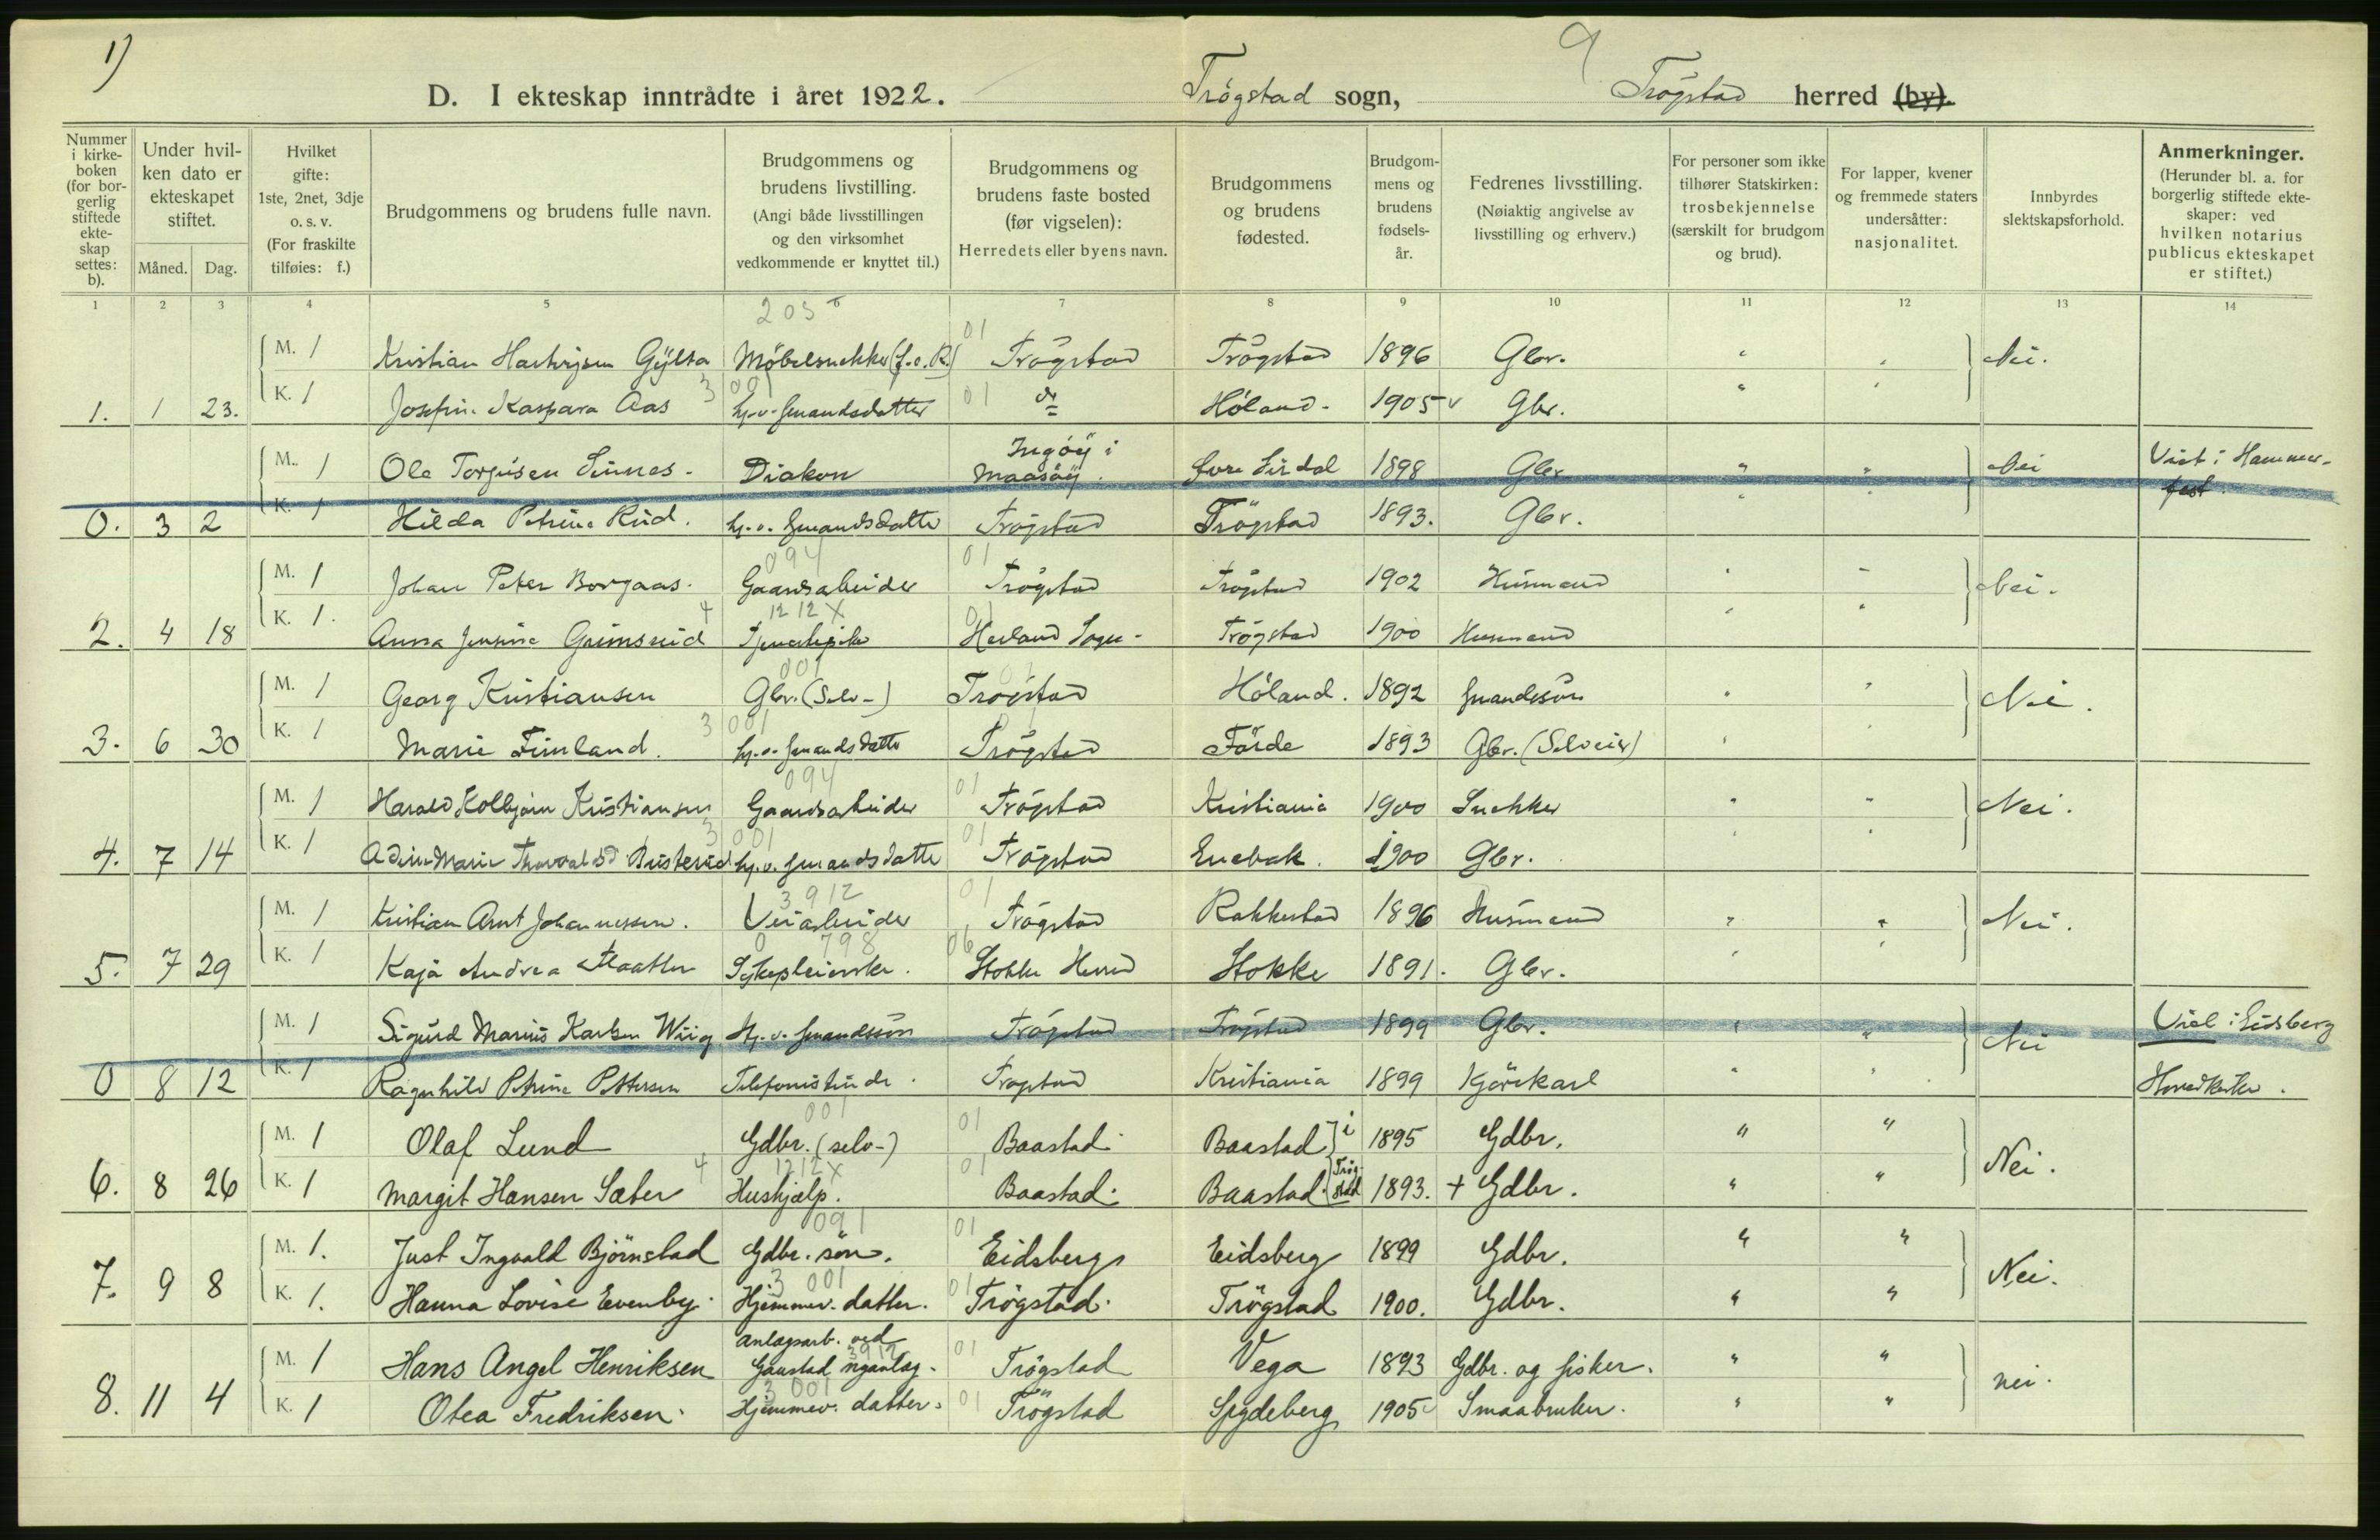 1)
9
D. I ekteskap inntrådte i året 1922. Trögstad sogn, Trögstad herred (by).
Nummer i kirkeboken (for borgerlig stiftede ekteskap settes: b).
Under hvilken dato er ekteskapet stiftet.
Måned. Dag.
Hvilket gifte: 1ste, 2net, 3dje o. s. v. (For fraskilte tilføies: f.)
Brudgommens og brudens fulle navn.
Brudgommens og brudens livstilling. (Angi både livsstillingen og den virksomhet vedkommende er knyttet til.)
Brudgommens og brudens faste bosted (før vigselen): Herredets eller byens navn.
Brudgommens og brudens fødested.
Brudgommens og brudens fødselsår.
Fedrenes livsstilling. (Nøiaktig angivelse av livsstilling og erhverv.)
For personer som ikke tilhører Statskirken: trosbekjennelse (særskilt for brudgom og brud).
For lapper, kvener og fremmede staters undersåtter: nasjonalitet.
Innbyrdes slektskapsforhold.
Anmerkninger. (Herunder bl. a. for borgerlig stiftede ekteskaper: ved hvilken notarius publicus ekteskapet er stiftet.)
1 2 3 4 5 6 7 8 9 10 11 12 13 14
205 01
M. 1 Kristian Gylta Møbelsnekker Trögstad Trögstad 1896 Gbr. " " Nei.
3 001 01
1. 1 23. K. 1 Josefine Kaspara Aas hj. v. Gmandsdatter do Höland. 1905 Gbr. " "
M. 1 Ole Torjusen Sinnes. Diakon Ingöy i Maasöy. Övre Sirdal 1898 Gbr " " Nei Viet i Hammerfest.
0. 3 2 K. 1 Hilda Petrine Rud. hj. v. Gmandsdatter Trögstad Trögstad 1893. Gbr. " "
094 01
M. 1 Johan Peter Borgaas. Gaardsarbeider Trögstad Trögstad 1902 Husmand " " Nei.
4 12 12 X 01
2. 4 18 K. 1. Anna Grimsrud Tjenestepike Havland Sogn. Trögstad 1900 Husmand " "
001 01
M. 1 Georg Kristiansen Gbr. (Selv-) Trögstad Höland. 1892 Gmandssön " " Nei.
3 001 01
3. 6 30 K. 1 Marie Finnland. hj. v. Gmandsdatter Trögstad Förde 1893 Gbr. (Selveier) " "
094 01
M. 1 Harald Kolbjörn Kristiansen Gaardsarbeider Trögstad Kristiania 1900 Snekker " " Nei.
3 001 01
4. 7 14 K. 1 Marie Thorvaldsd hj. v. Gmandsdatter Trögstad Enebak. 1900 Gbr. " "
3912 01
M. 1 Kristian Arnt Johannessen. Veiarbeider Trögstad Rakkestad 1896 Husmand " " Nei.
0 798 06
5. 7 29 K. 1 Kaja Andrea Sykepleierske. Stokke Herred Stokke 1891. Gbr. " "
M. 1 Sigurd Marius Karlsen Wiig Hj. v. Gmandssön Trögstad Trögstad 1899 Gbr. " " Nei Viet i Eidsberg
0 8 12 K. 1 Ragnhild Petrine Pettersen Telefonistinde. Trögstad Kristiania 1899 Kjörekarl " " Hovedkirke.
001 01
M. 1 Olaf Lund Gdbr. (selv-) Baastad Baastad } i 1895 Gdbr. " "
4 1212 X 01
6. 8 26 K. 1 Margit Hansen Sæter Hushjælp. Baastad. Baastad. Trögstad 1893. + Gdbr. " " Nei.
091 01
M. 1. Just Ingvald Björnstad Gdbr. sön. Eidsberg Eidsberg 1899 Gdbr. " "
3 001 01
7. 9 8 K. 1. Hanna Lovise Evenby. Hjemmev. datter. Trögstad. Trögstad 1900. Gdbr. " " Nei.
3912 01
M. 1 Hans Angel Henriksen Anlægsarb. ved Gaastad Trögstad Vega 1893 Gdbr. og fisker. " "
3 001 01
8. 11 4 K. 1 Otea Fredriksen. Hjemmev. datter. Trögstad Spydeberg 1905 Smaabruker. " " nei.